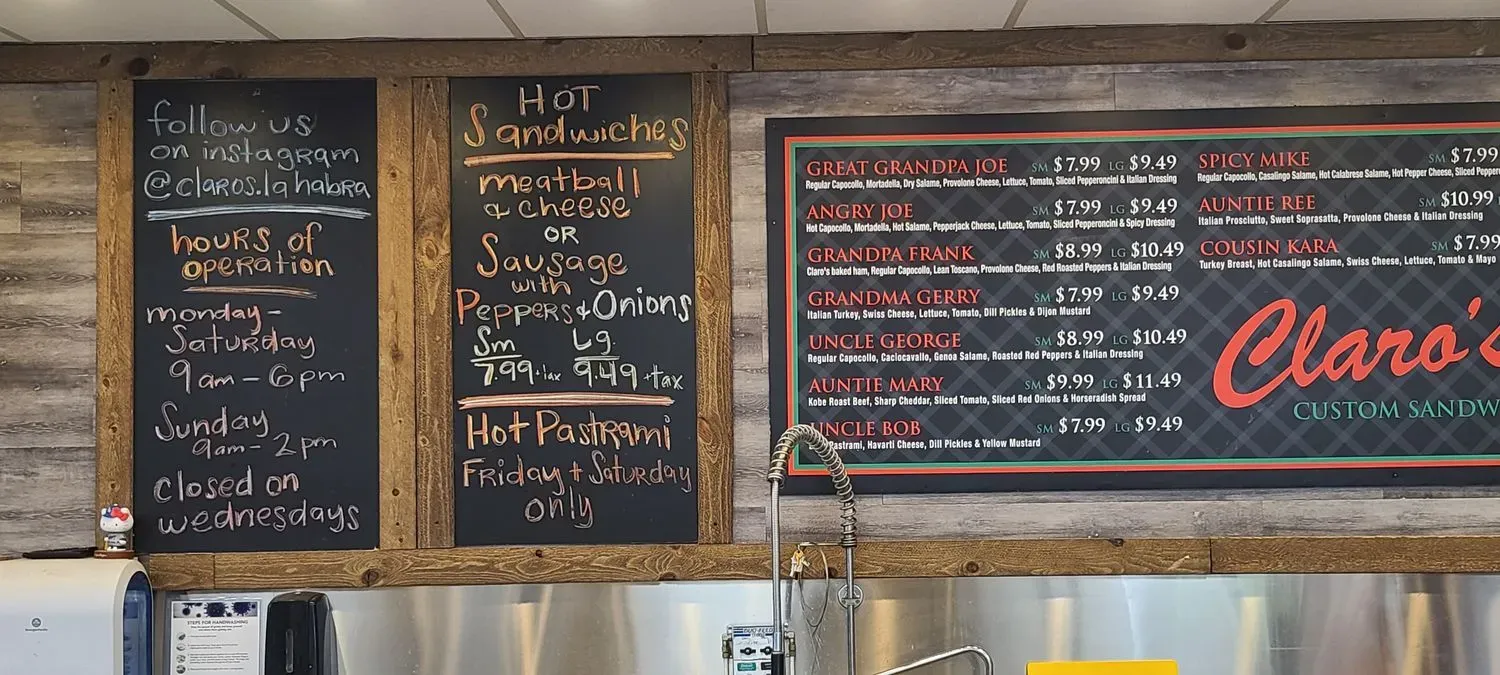 follow us
on instagram
@claros.lahabra
hours of
operation
monday-
Saturday
9am-6pm
Sunday
9am-2pm
closed on
wednesdays
HOT
Sandwiches
meatball
& cheese
OR
Sausage
with
Peppers & Onions
Sm Lg
7.99 + tax 9.49 + tax
Hot Pastrami
Friday + Saturday
only
GREAT GRANDPA JOE SM $7.99 LG $9.49
Regular Capocollo, Mortadella, Dry Salame, Provolone Cheese, Lettuce, Tomato, Sliced Pepperoncini & Italian Dressing
ANGRY JOE SM $7.99 LG $9.49
Hot Capocollo, Mortadella, Hot Salame, Pepperjack Cheese, Lettuce, Tomato, Sliced Pepperoncini & Spicy Dressing
GRANDPA FRANK SM $8.99 LG $10.49
Claro's baked ham, Regular Capocollo, Lean Toscano, Provolone Cheese, Red Roasted Peppers & Italian Dressing
GRANDMA GERRY SM $7.99 LG $9.49
Italian Turkey, Swiss Cheese, Lettuce, Tomato, Dill Pickles & Dijon Mustard
UNCLE GEORGE SM $8.99 LG $10.49
Regular Capocollo, Caciocavallo, Genoa Salame, Roasted Red Peppers & Italian Dressing
AUNTIE MARY SM $9.99 LG $11.49
Kobe Roast Beef, Sharp Cheddar, Sliced Tomato, Sliced Red Onions & Horseradish Spread
UNCLE BOB SM $7.99 LG $9.49
Pastrami, Havarti Cheese, Dill Pickles & Yellow Mustard
SPICY MIKE SM $7.99
Regular Capocollo, Casalingo Salame, Hot Calabrese Salame, Hot Pepper Cheese, Sliced
AUNTIE REE SM $10.99
Italian Prosciutto, Sweet Soprasatta, Provolone Cheese & Italian Dressing
COUSIN KARA SM $7.99
Turkey Breast, Hot Casalingo Salame, Swiss Cheese, Lettuce, Tomato & Mayo
Claro's
CUSTOM SANDW
STEPS FOR HANDWASHING